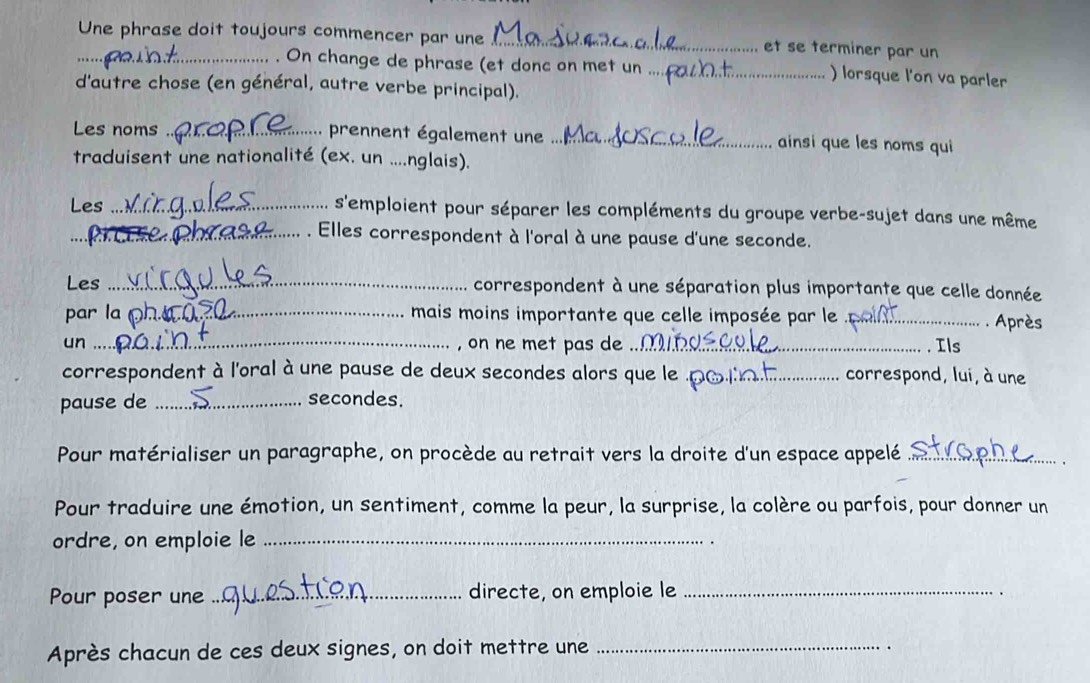 Une phrase doit toujours commencer par une Majuscule et se terminer par un
point . On change de phrase (et donc on met un point ) lorsque l'on va parler
d'autre chose (en général, autre verbe principal).
Les noms propre prennent également une Majoscole ainsi que les noms qui
traduisent une nationalité (ex. un ....nglais).
Les virgoles s'emploient pour séparer les compléments du groupe verbe-sujet dans une même
phrase . Elles correspondent à l'oral à une pause d'une seconde.
Les virgules correspondent à une séparation plus importante que celle donnée
par la phrase mais moins importante que celle imposée par le point . Après
un point , on ne met pas de minoscole . Ils
correspondent à l'oral à une pause de deux secondes alors que le point correspond, lui, à une
pause de 5 secondes.
Pour matérialiser un paragraphe, on procède au retrait vers la droite d'un espace appelé strophe .
Pour traduire une émotion, un sentiment, comme la peur, la surprise, la colère ou parfois, pour donner un
ordre, on emploie le .
Pour poser une question directe, on emploie le .
Après chacun de ces deux signes, on doit mettre une .